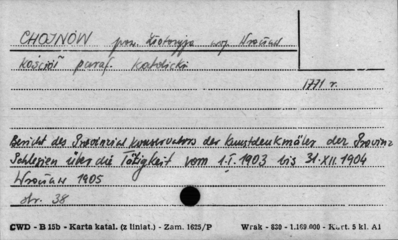 CHOJNÓW pow. Złotoryja woj. Wrocław
Kościół paraf. katolicki
1771 r.
Bericht des Provinzial Konservators der Kunstdenkmäler der Provinz
Schlesien über die Tätigkeit vom 1.I.1903 bis 31.XII.1904
Wrocław 1905
str. 38
CWD - B 15b - Karta katal. (z liniat.) - Zam. 1625/P Wrak - 820 - 1.169 000 - Kart. 5 kl. A1